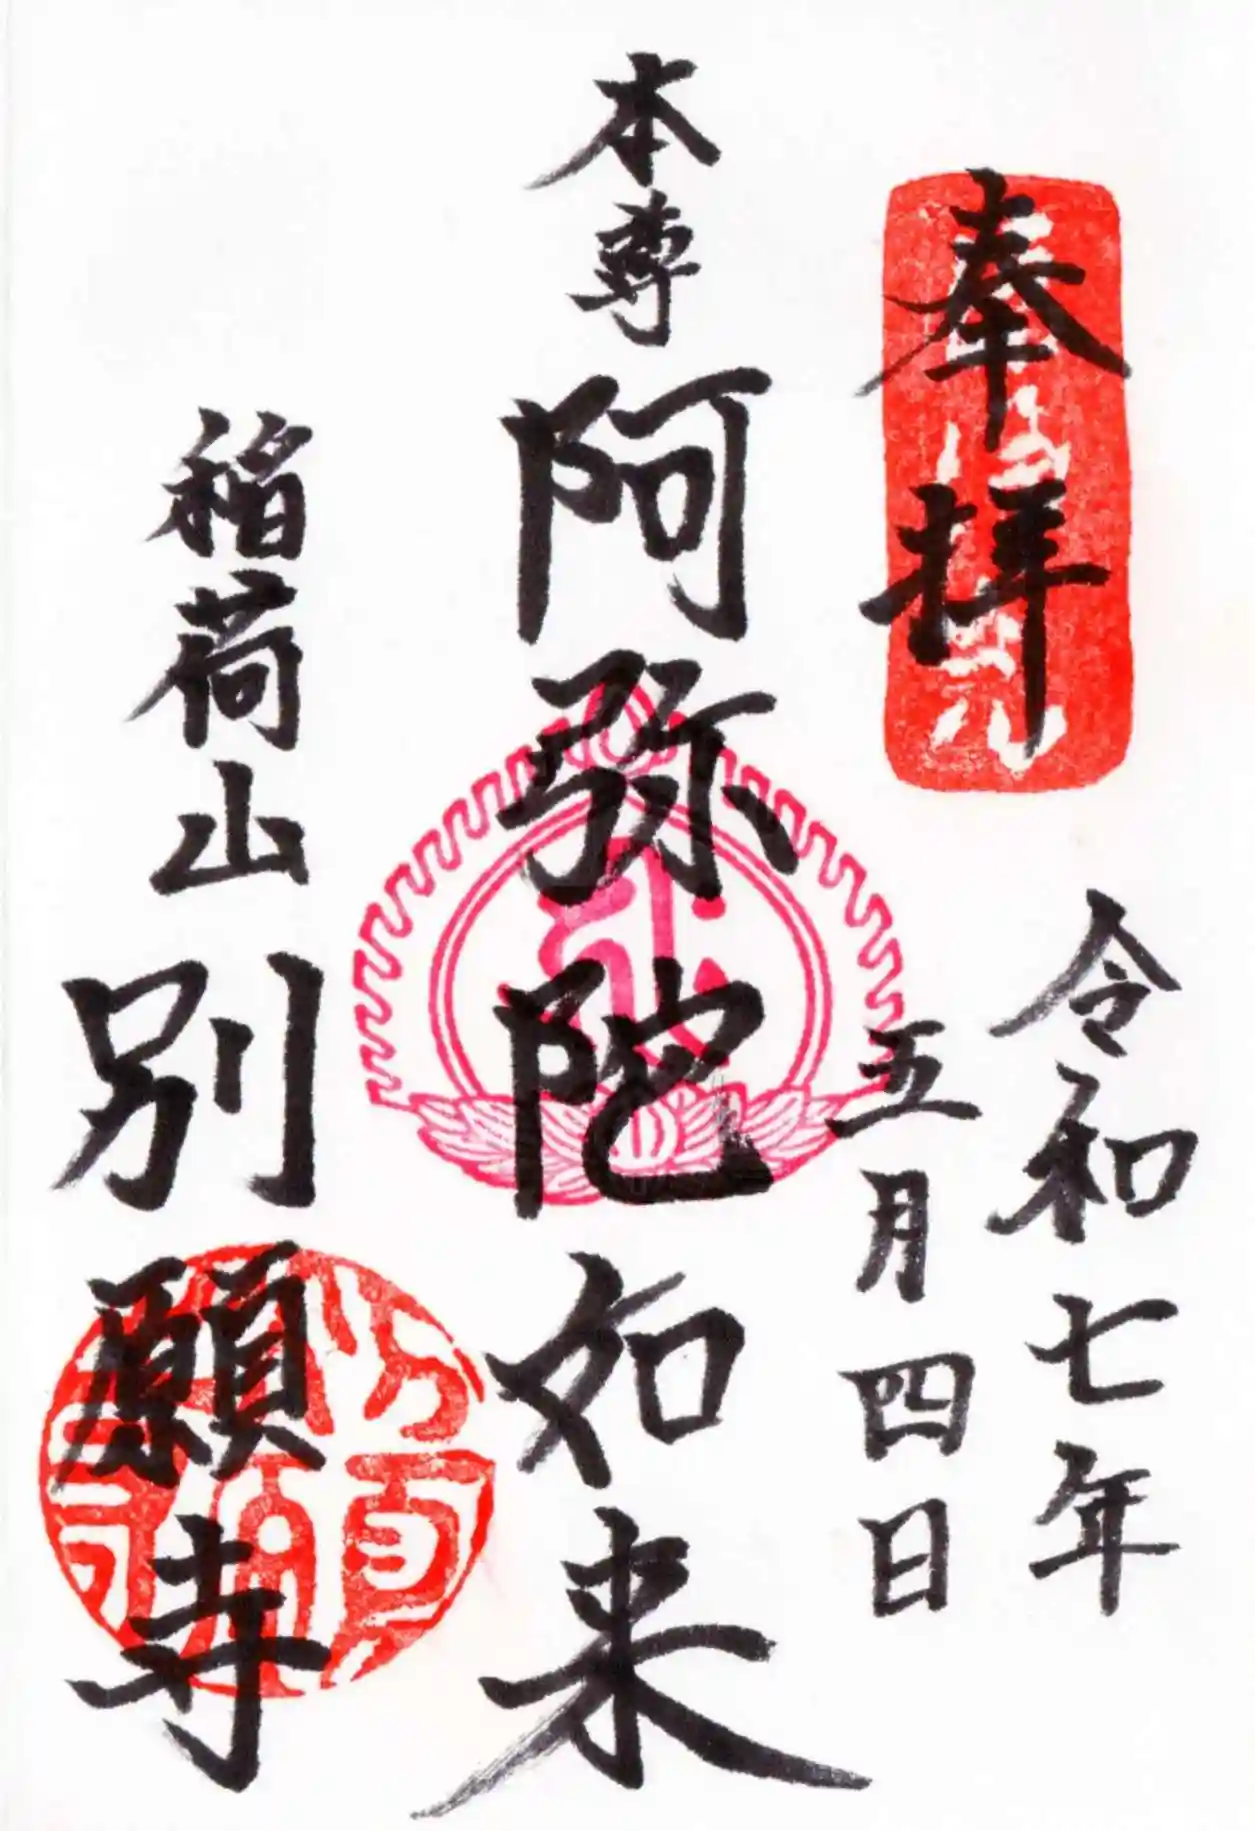 奉拝
令和七年
五月四日
本尊 阿弥陀如来
稲荷山 別願寺